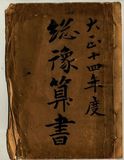 大正十四年度
總豫算書